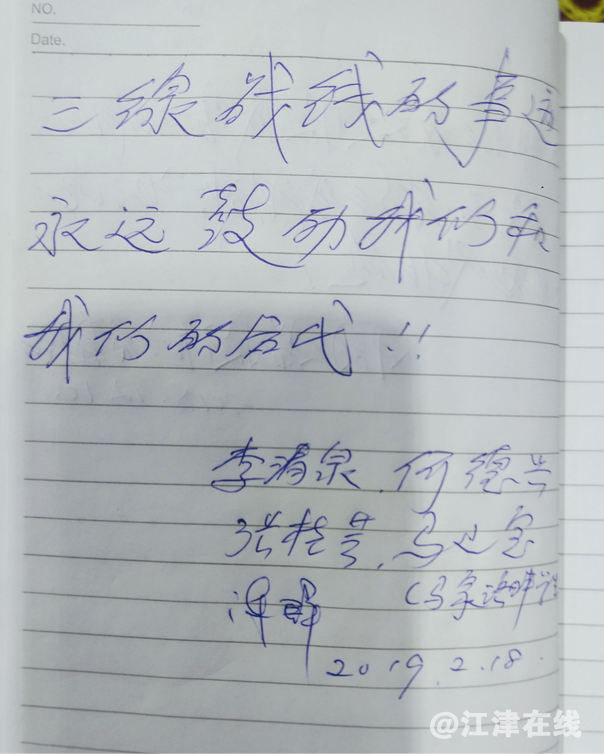 NO.
Date.
三线战线的事迹
永远鼓励我们和
我们的后代!!
李清泉、何德兴
张桂芳、马必金
(马家洪
2019.2.18.
@江津在线